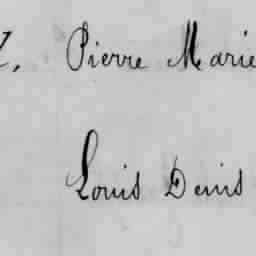 Pierre Marie
Louis Denis